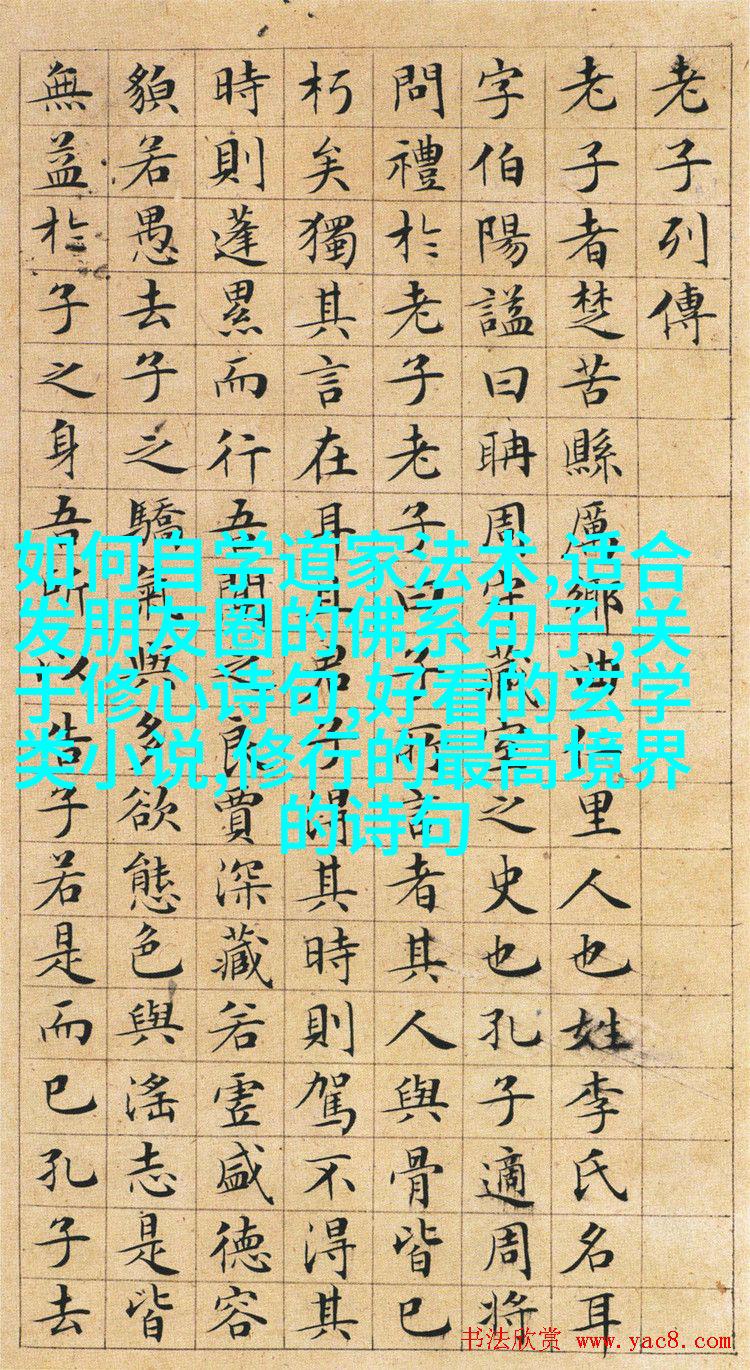 老子列傳
老子者楚苦縣厲鄉曲仁里人也姓李氏名耳
字伯陽謚曰聃周守藏室之史也孔子適周將
問禮於老子老子曰子所言者其人與骨皆已
朽矣獨其言在耳且君子得其時則駕不得其
時則蓬累而行吾聞之良賈深藏若虛盛德容
䫉若愚去子之驕氣與多欲態色與淫志是皆
無益於子之身吾所以告子若是而已孔子去
如何自学道家法术,适合
发朋友圈的佛系句子,关
于修心诗句,好看的玄学
类小说,修行的最高境界
的诗句
书法欣赏 www.yac8.com